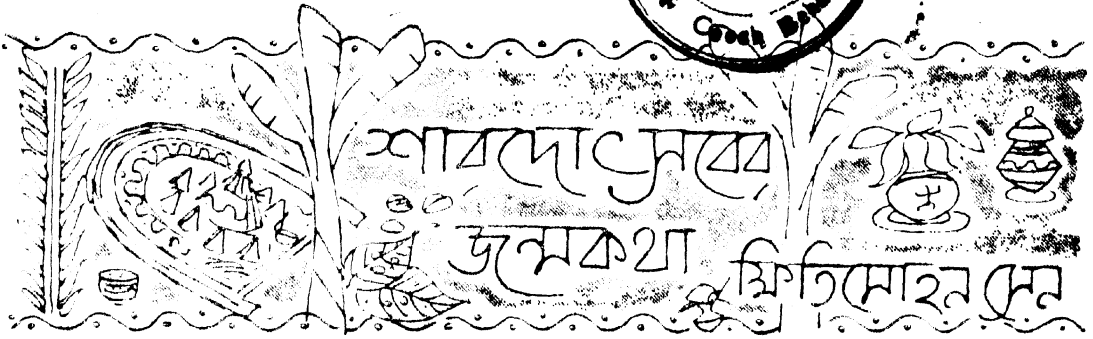 Cooch Beha
শারদোৎসবের
জন্মকথা
ক্ষিতিমোহন সেন